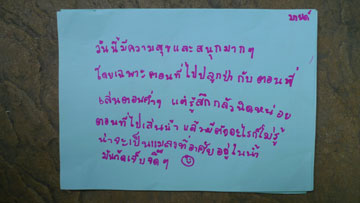 มายด์
วันนี้มีความสุขและสนุกมากๆ
โดยเฉพาะตอนที่ไปปลูกป่ากับตอนที่
เล่นตอนค่ำๆ แต่รู้สึกกลัวนิดหน่อย
ตอนที่ไปเล่นน้ำ แล้วมีตัวอะไรก็ไม่รู้
น่าจะเป็นแมลงที่อาศัยอยู่ในน้ำ
มันกัดเจ็บจี๊ดๆ